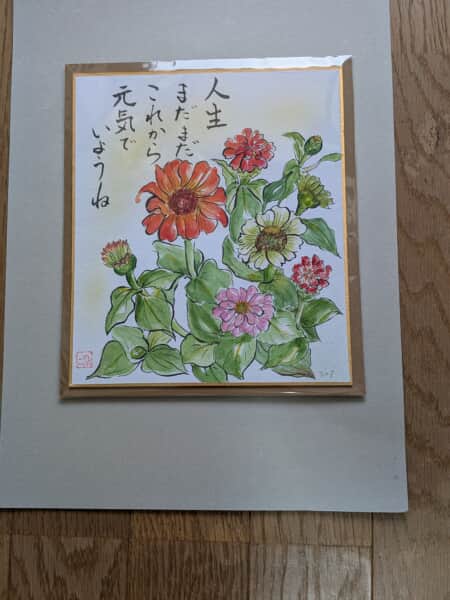 人生
まだまだ
これから
元気で
いようね